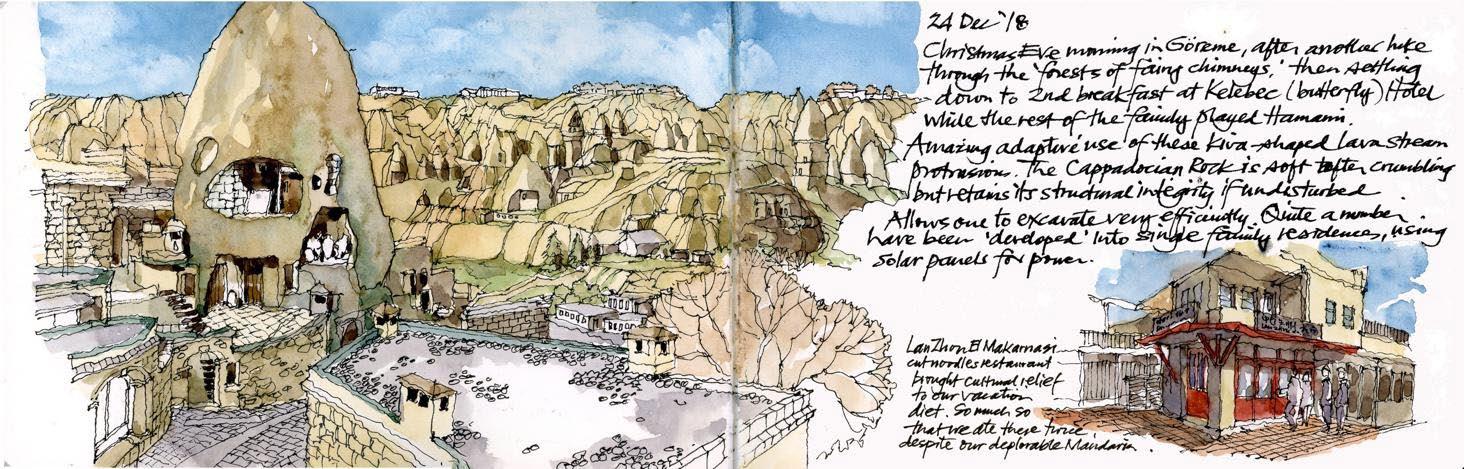 24 Dec '18
Christmas Eve morning in Göreme, after another hike
through the 'forests of fairy chimneys,' then settling
down to 2nd breakfast at Kelebec (butterfly) Hotel
while the rest of the family played Hamam.
Amazing adaptive use of these Kiva-shaped Lava stream
protrusion. The Cappadocian Rock is soft & often crumbling
but retains its structural integrity if undisturbed
Allows one to excavate very efficiently. Quite a number
have been 'developed' into single family residences, using
solar panels for power.
LanZhou El Makarnasi
cut noodles restaurant
brought cultural relief
to our vacation
diet. So much so
that we ate there twice
despite our deplorable Mandarin.